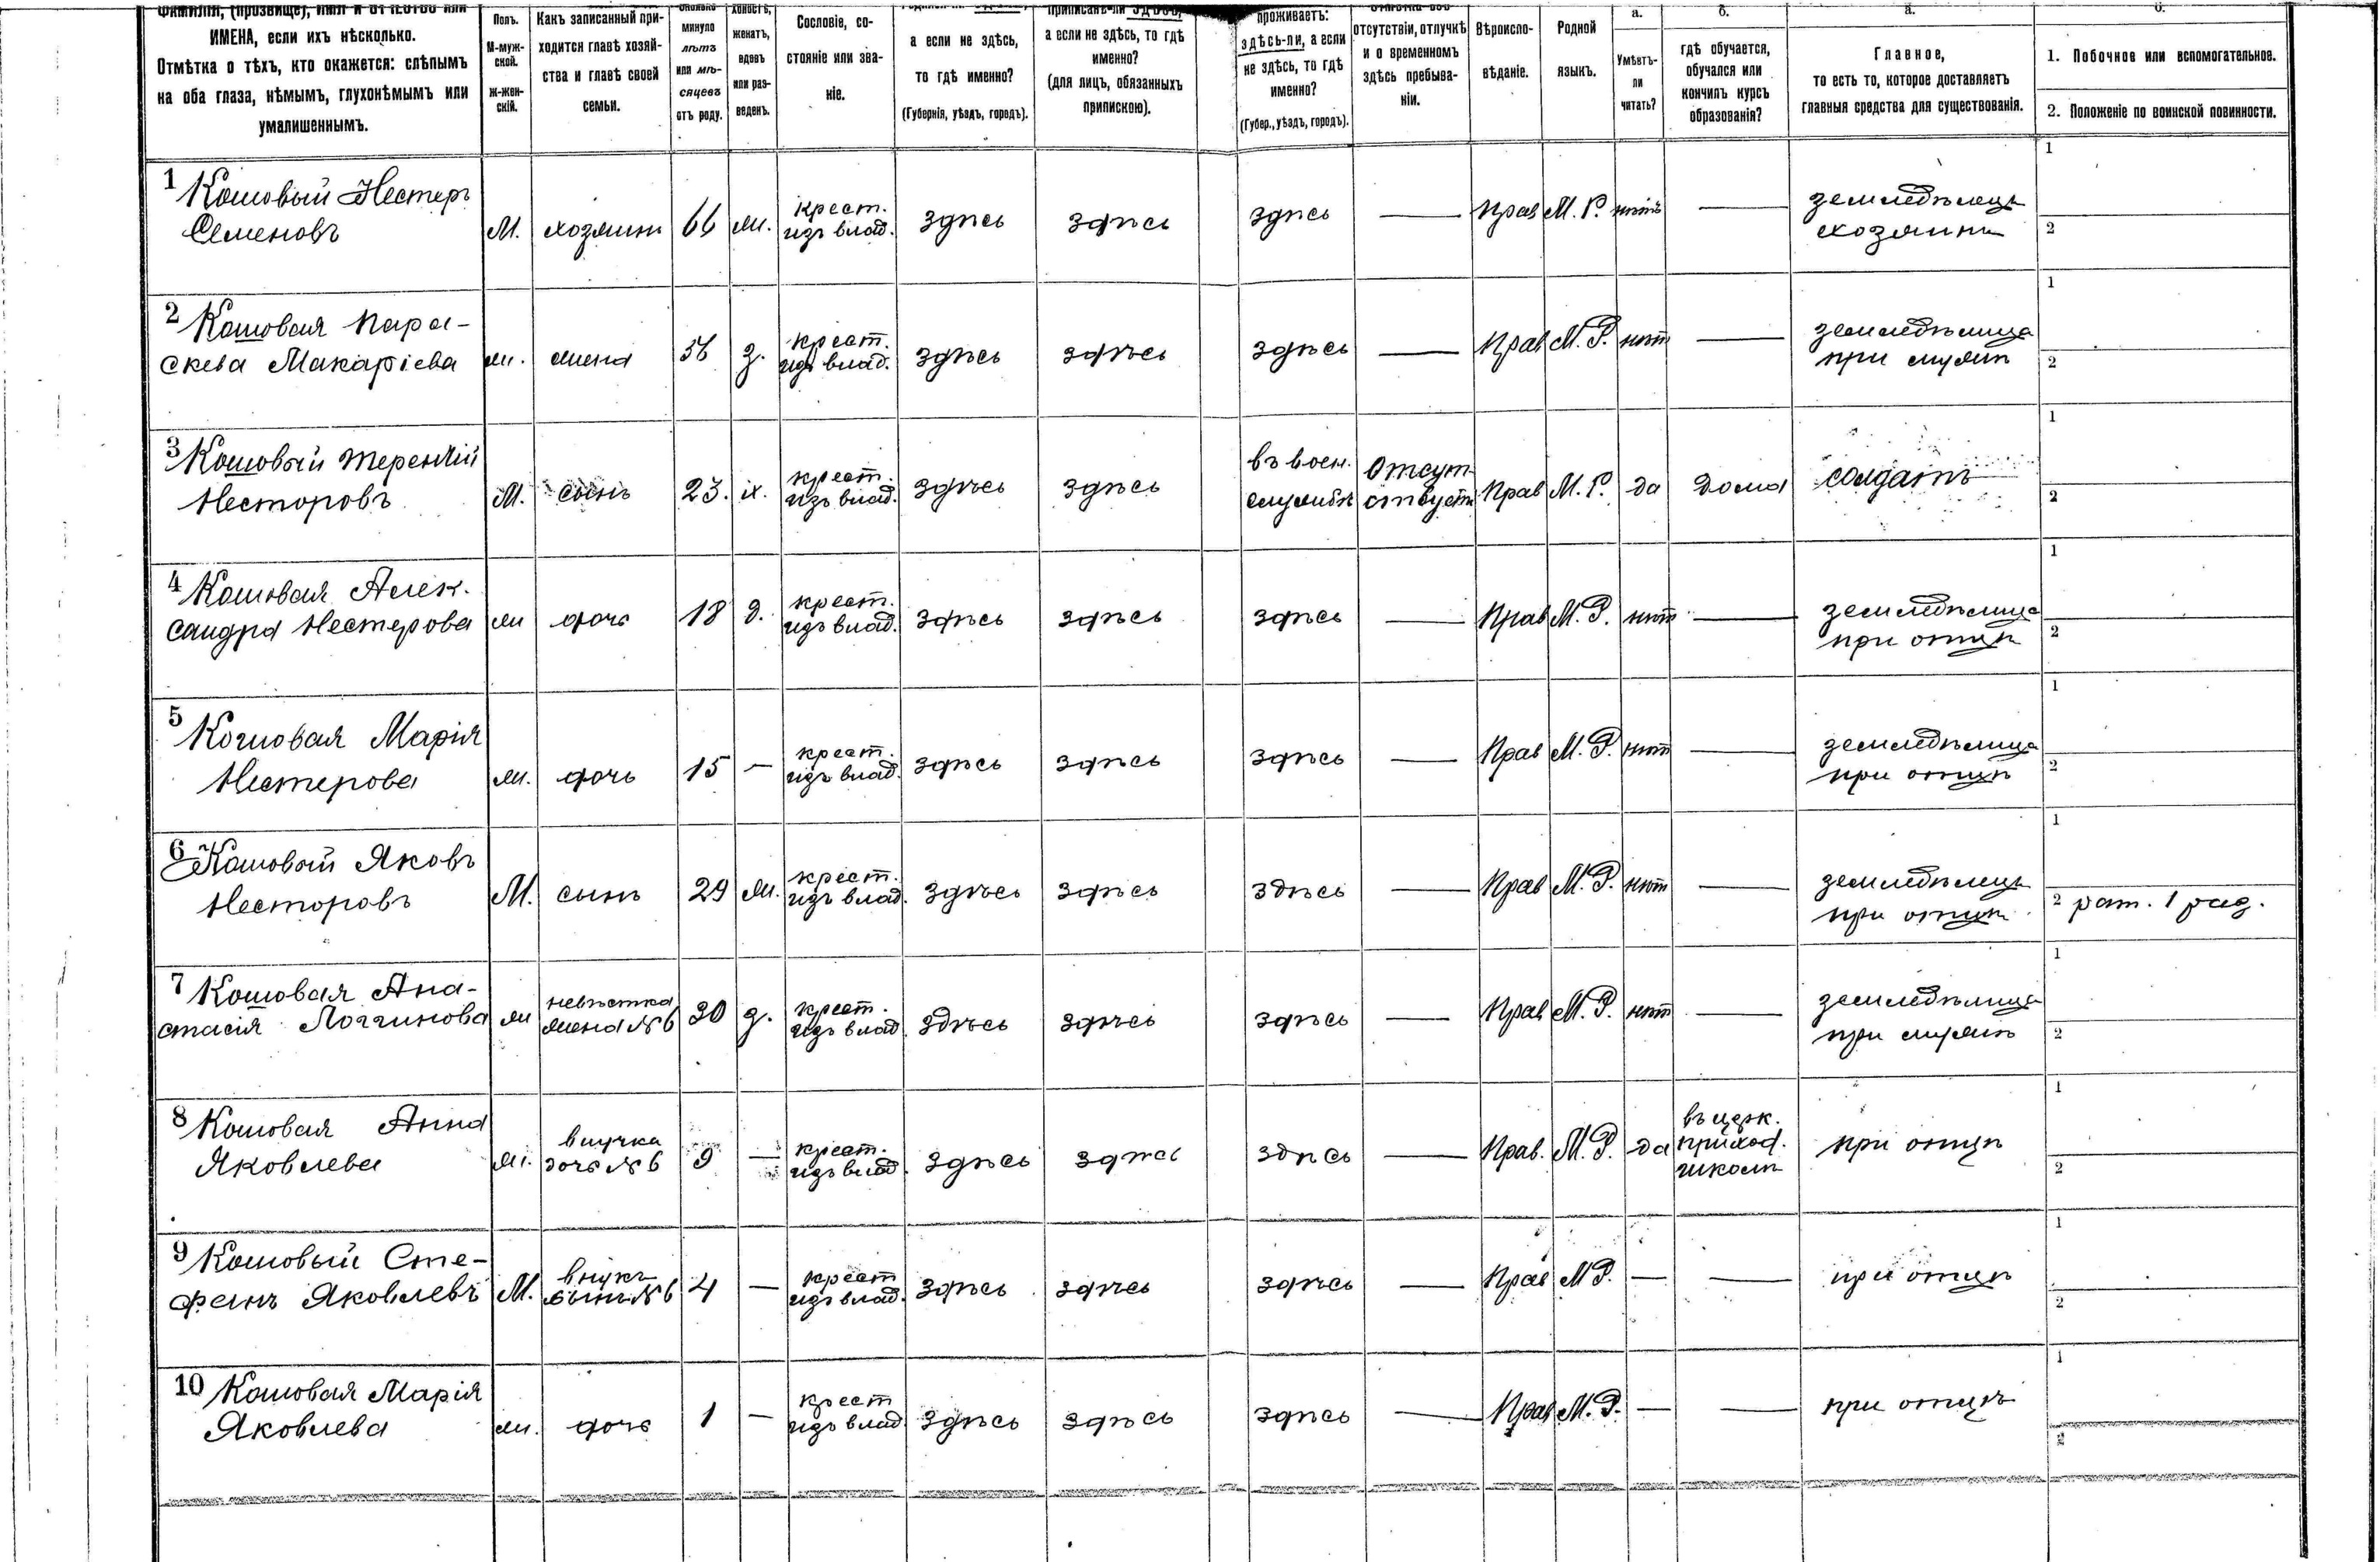 ИМЕНА, если ихъ нѣсколько.
Отмѣтка о тѣхъ, кто окажется: слѣпымъ
на оба глаза, нѣмымъ, глухонѣмымъ или
умалишеннымъ.
Полъ.
М-муж-
ской.
Ж-жен-
скій.
Какъ записанный при-
ходится главѣ хозяй-
ства и главѣ своей
семьи.
минуло
лѣтъ
или мѣ-
сяцевъ
отъ роду.
женатъ,
вдовъ
или раз-
веденъ.
Сословіе, со-
стояніе или зва-
ніе.
а если не здѣсь,
то гдѣ именно?
(Губернія, уѣздъ, городъ).
а если не здѣсь, то гдѣ
именно?
(для лицъ, обязанныхъ
припискою).
проживаетъ:
здѣсь-ли, а если
не здѣсь, то гдѣ
именно?
(Губер., уѣздъ, городъ).
отсутствіи, отлучкѣ
и о временномъ
здѣсь пребыва-
ніи.
Вѣроиспо-
вѣданіе.
Родной
языкъ.
а.
Умѣетъ-
ли
читать?
б.
гдѣ обучается,
обучался или
кончилъ курсъ
образованія?
а.
Главное,
то есть то, которое доставляетъ
главныя средства для существованія.
б.
1. Побочное или вспомогательное.
2. Положеніе по воинской повинности.
1 Кошовый Нестеръ
Семеновъ
М. хозяинъ 66 ж. крест.
изъ влад. здѣсь здѣсь здѣсь — Прав М. Р. нѣтъ — земледѣлецъ
хозяинъ
1
2
2 Кошовая Пара-
скева Макаріева
ж. жена 56 з. крест.
изъ влад. здѣсь здѣсь здѣсь — Прав М. Р. нѣт — земледѣлица
при мужѣ
1
2
3 Кошовый Терентій
Несторовъ
М. сынъ 23. х. крест.
изъ влад. здѣсь здѣсь въ воен.
службѣ Отсут-
ствует Прав М. Р. да дома солдатъ
1
2
4 Кошовая Алек-
сандра Нестерова
ж дочь 18 д. крест.
изъ влад. здѣсь здѣсь здѣсь — Прав М. Р. нѣт — земледѣлица
при отцѣ
1
2
5 Кошовая Марія
Нестерова
ж. дочь 15 — крест.
изъ влад. здѣсь здѣсь здѣсь — Прав М. Р. нѣт — земледѣлица
при отцѣ
1
2
6 Кошовый Яковъ
Несторовъ
М. сынъ 29 ж. крест.
изъ влад. здѣсь здѣсь здѣсь — Прав М. Р. нѣт — земледѣлецъ
при отцѣ
1
2 рат. 1 раз.
7 Кошовая Ана-
стасія Логгинова
ж невѣстка
жена №6 30 з. крест.
изъ влад здѣсь здѣсь здѣсь — Прав М. Р. нѣт — земледѣлица
при мужѣ
1
2
8 Кошовая Анна
Яковлева
ж. внучка
дочь №6 9 — крест.
изъ влад. здѣсь здѣсь здѣсь — Прав. М. Р. да въ церк.
приход.
школѣ при отцѣ
1
2
9 Кошовый Сте-
фанъ Яковлевъ
М. внукъ
сынъ №6 4 — крест
изъ влад. здѣсь здѣсь здѣсь — Прав М Р. — — при отцѣ
1
2
10 Кошовая Марія
Яковлева
ж. дочь 1 — крест
изъ влад здѣсь здѣсь здѣсь — Прав М. Р. — — при отцѣ
1
2